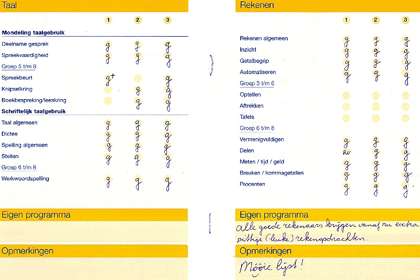 Taal
1 2 3
Mondeling taalgebruik
Deelname gesprek g g g
Spreekvaardigheid g g g
Groep 5 t/m 8
Spreekbeurt g+ g
Kringviering g g
Boekbespreking/leeskring g g
Schriftelijk taalgebruik
Taal algemeen g g g
Dictee g g g
Spelling algemeen g g g
Stellen g g g
Groep 6 t/m 8
Werkwoordspelling g g g
Eigen programma
Opmerkingen
Rekenen
1 2 3
Rekenen algemeen g g g
Inzicht g g g
Getalbegrip g g g
Automatiseren g g g
Groep 3 t/m 6
Optellen
Aftrekken
Tafels
Groep 6 t/m 8
Vermenigvuldigen g g g
Delen g g
Meten / tijd / geld g g g
Breuken / kommagetallen g g g
Procenten g g g
Eigen programma
Alle goede rekenaars krijgen vanaf nu extra
pittige (leuke) rekenopdrachten
Opmerkingen
Mooie lijst!